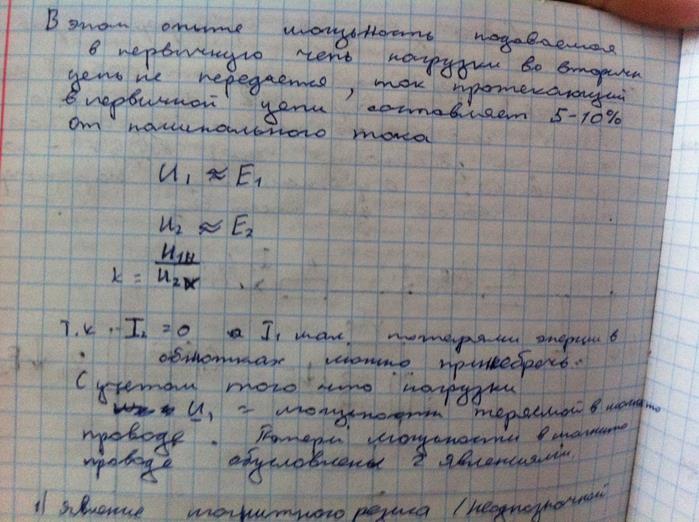 В этом опыте мощьность подаваемая
в первичную чепь нагрузки во вторичн
цепь не передается, ток протекающий
в первичной цепи составляет 5-10%
от номинального тока
U₁ ≈ E₁
U₂ ≈ E₂
k = U₁н / U₂х
Т.к. I₂ = 0 а I₁ мал. потерями энергии в
обмотках можно принебречь.
С учетом того что нагрузки
U₁ = мощьности теряемой в магнито
проводе. Потери мощности в магнито
проводе обусловлены 2 явлениями.
1) явление магнитного (неоднозначной